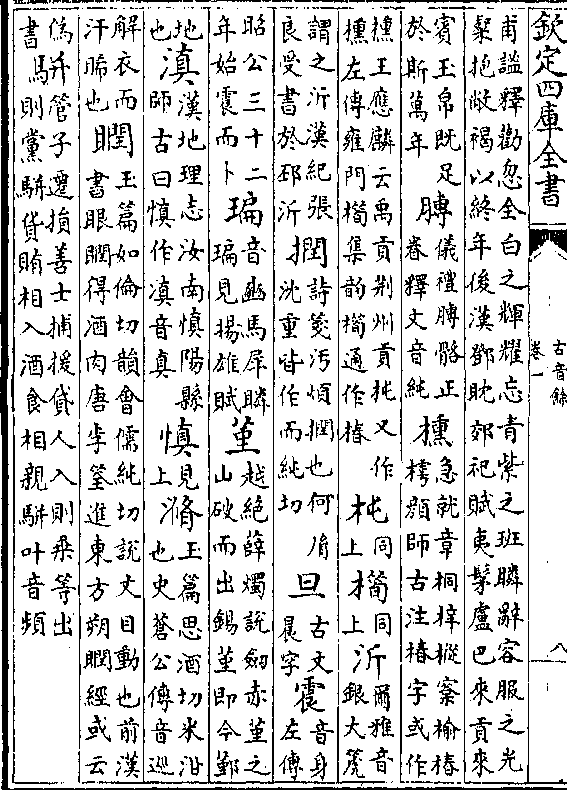 欽定四庫全書
古音餘
卷一
八
甫謐釋勸忽全白之輝耀忘青紫之班瞵辭容服之光
粲抱敝褐以終年後漢鄧耽郊祀賦夷髳盧巴來貢來
賓玉帛既足
於斯萬年
膞
儀禮膊骼正
脊釋文音純
櫄
急就章桐梓樅榆椿
樗顔師古注椿字或作
櫄王應麟云禹貢荆州貢杶又作
櫄左傳雍門橁集韵橁通作椿
杶
同
上
橁
同
上
沂
爾雅音
銀大篪
謂之沂漢紀張
良受書於邳沂
撋
詩箋汚煩撋也何胤
沈重皆作而純切
旦
古文
晨字
震
音身
左傳
昭公三十二
年始震而卜
㻞
音豳馬犀瞵
㻞見揚雄賦
堇
越絶薛燭說劔赤堇之
山破而出錫堇即今鄞
地
也
滇
漢地理志汝南慎陽縣
師古曰慎作滇音真
慎
見
上
滫
玉篇思酒切米泔
也史蒼公傳音巡
解衣而
汗晞也
瞤
玉篇如倫切韻會儒純切說文目動也前漢
書眼瞤得酒肉唐李筌進東方朔瞤經或云
偽
書
駢
管子遷損善士捕援貸人入則乘等出
則黨駢貨賄相入酒食相親駢叶音頻